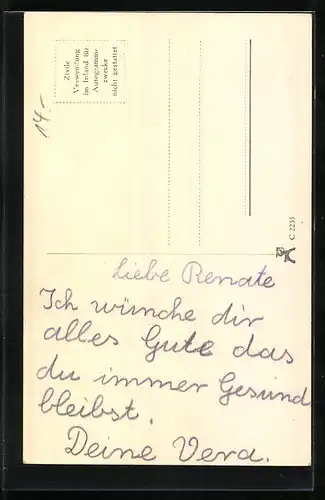 Zivile
Verwendung
im Inland für
Autogramm-
zwecke
nicht gestattet
14.-
C 2235
Liebe Renate
Ich wünche dir
alles Gute das
du immer Gesund
bleibst.
Deine Vera.